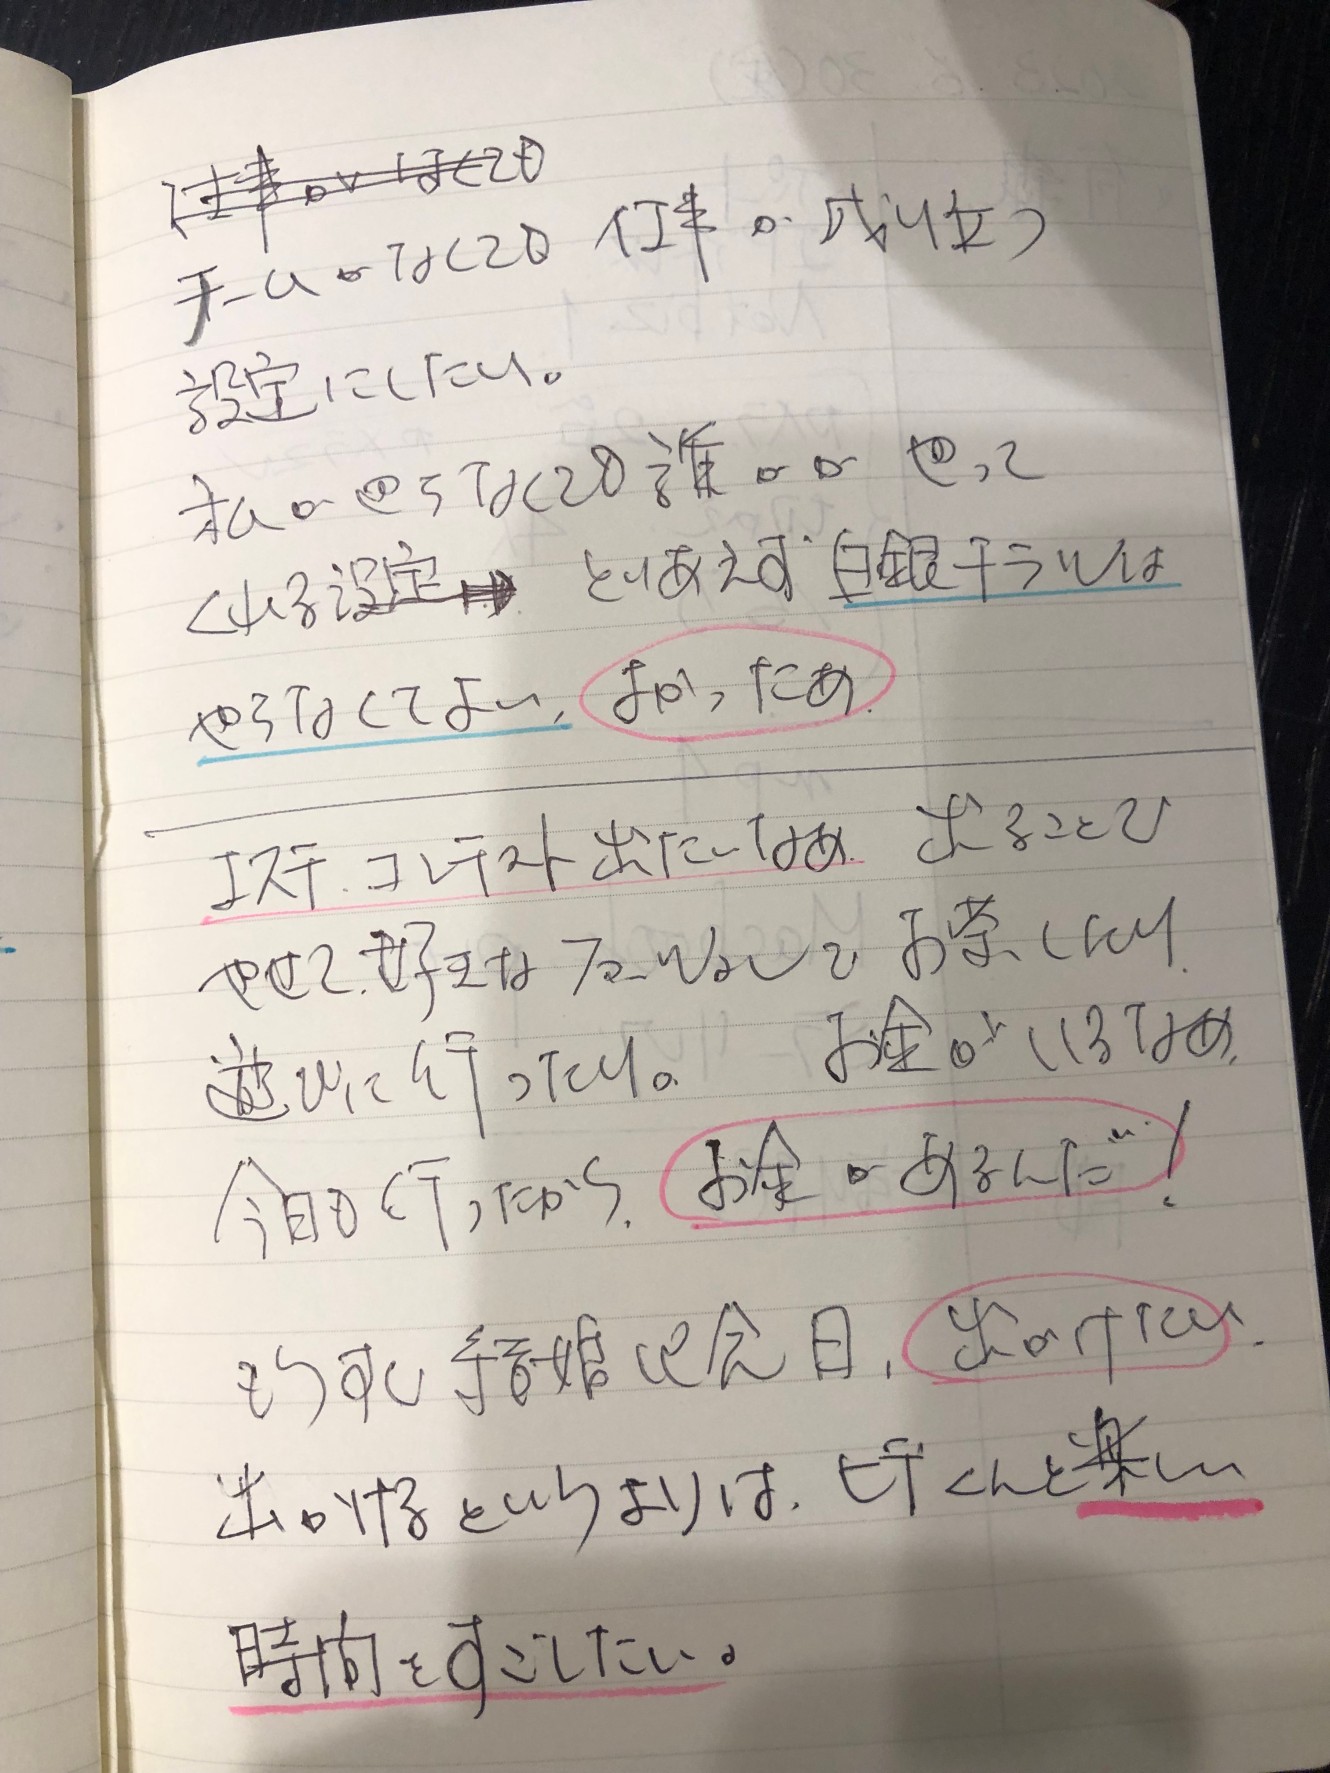 仕事がなくても
チームがなくても 仕事が成り立つ
設定にしたい。
私がやらなくても誰かが やって
くれる設定 とりあえず 白銀
やらなくてよい, よかったぁ.
エステ.コンテスト出たいなぁ. 出ること
やせて.好きな お茶したり.
遊びに行ったり。 お金がいるなぁ.
今日も行ったから, お金があるんだ!
もうすぐ結婚記念日, 出かけたい.
出かけるというよりは, くんと楽しい
時間をすごしたい。